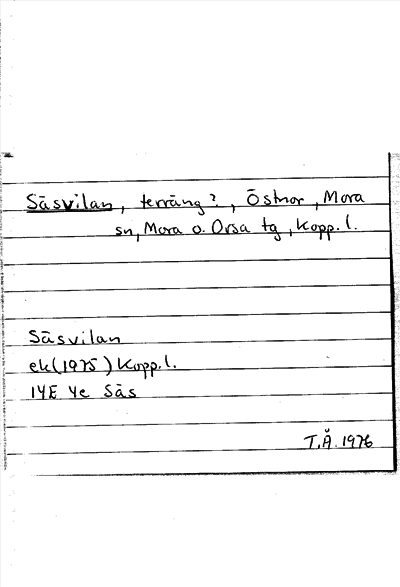 Säsvilan, terräng?, Östnor, Mora
sn, Mora o. Orsa tg, Kopp. l.
Säsvilan
ek (1975) Kopp. l.
14E 4e Säs
T.Å. 1976